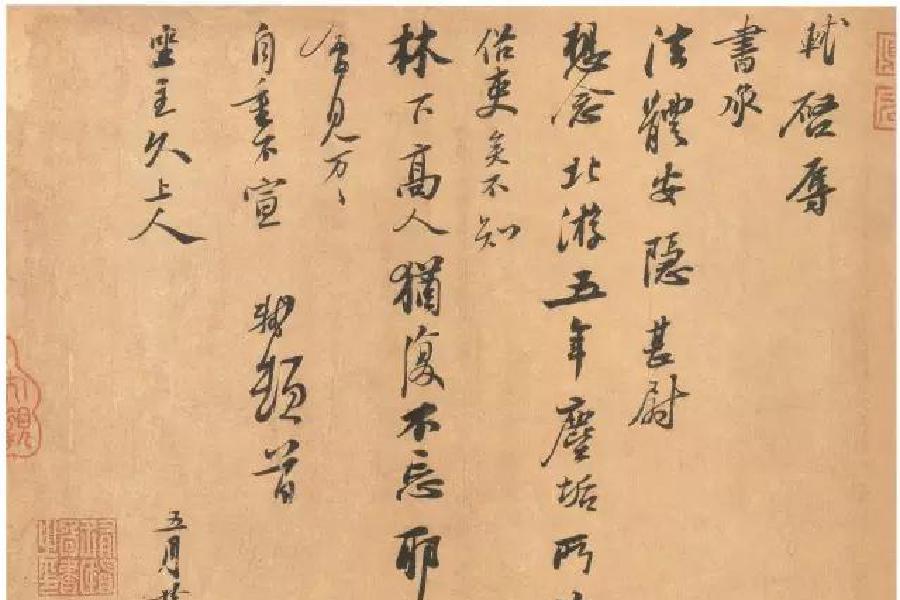 軾啓辱
書承
法體安隱甚尉
想念北游五年塵垢所
俗吏矣不知
林下高人猶復不忘耶
會見万万
自重不宣 軾頓首
坐主久上人
五月